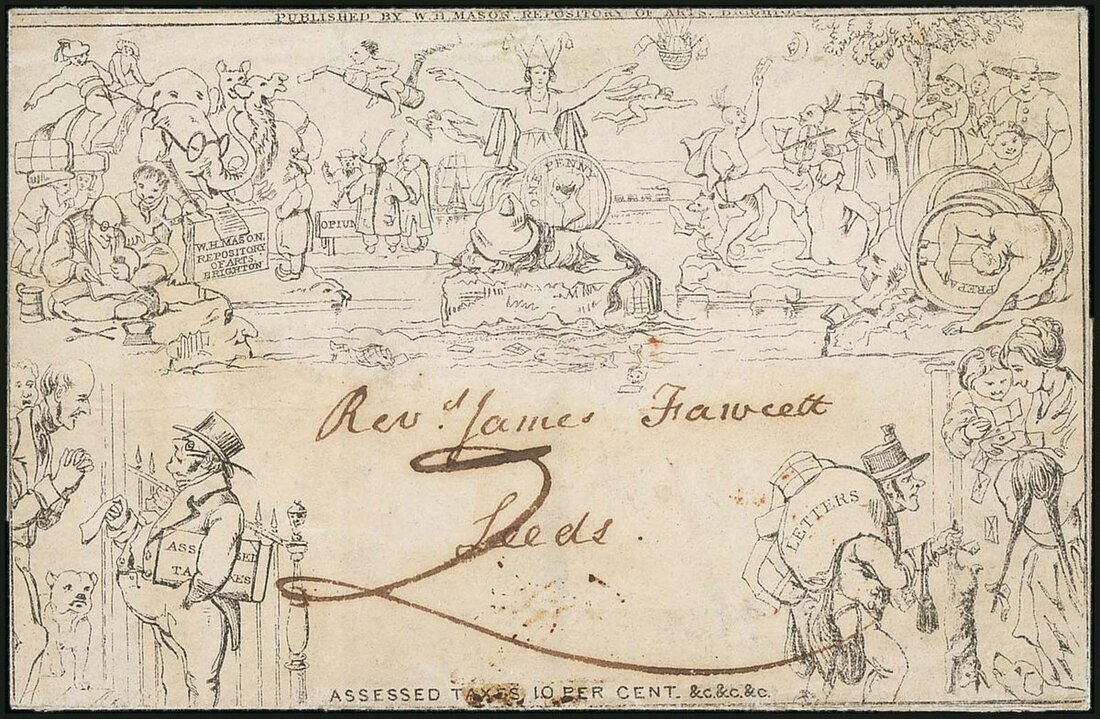 PUBLISHED BY W. H. MASON. REPOSITORY OF ARTS. BRIGHTON.
ONE PENNY
OPIUM
W. H. MASON,
REPOSITORY
OF ARTS
BRIGHTON
PREPAI
Revd. James Fawcett
2
Leeds.
LETTERS
ASS SED
TA XES
ASSESSED TAXES, 10 PER CENT. &c.&c.&c.